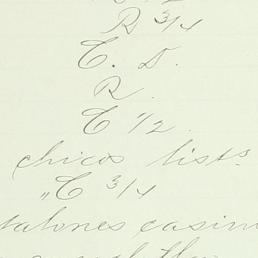 R 3/4
C. D.
R.
C 1/2
chicos lists
"C 3/4
talones casim